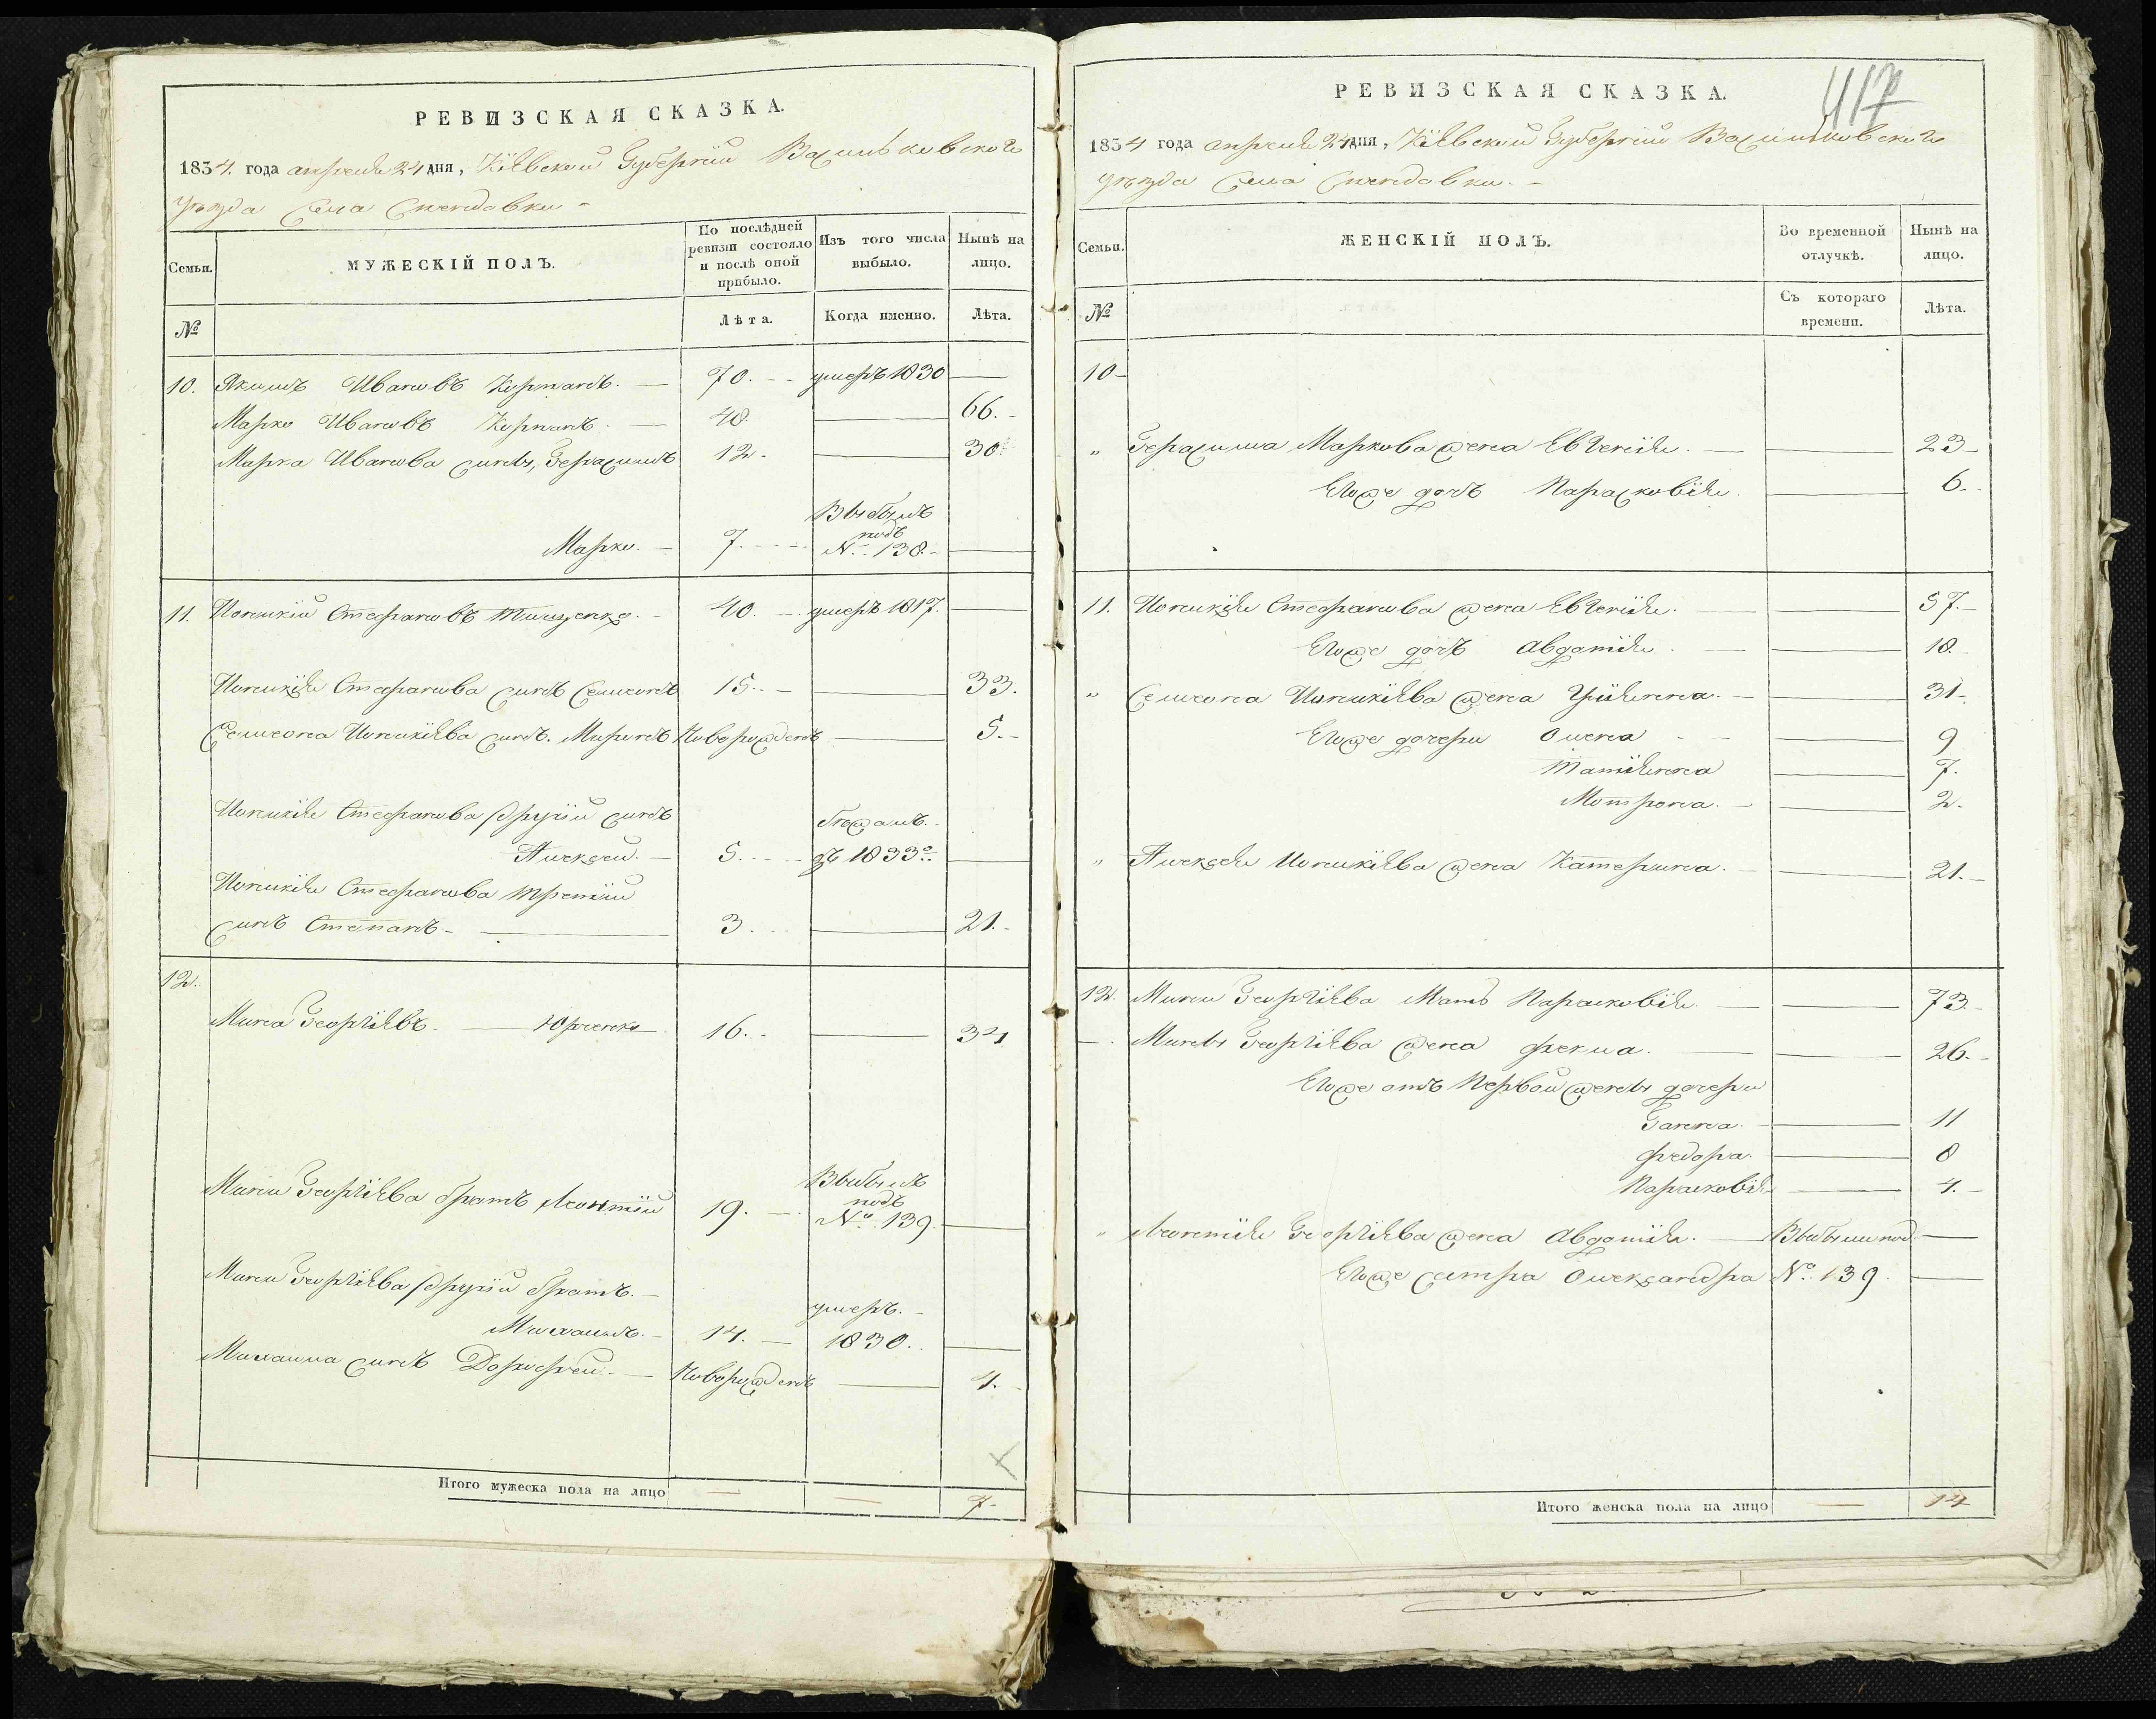 РЕВИЗСКАЯ СКАЗКА.
1834. года апреля 24 дня, Кіевской Губерніи Васильковского
уѣзда Села
Семьи.
МУЖЕСКІЙ ПОЛЪ.
По послѣдней ревизіи состояло и послѣ оной прибыло.
Изъ того числа выбыло.
Нынѣ на лицо.
№
Лѣта.
Когда именно.
Лѣта.
10. Якимъ Ивановъ 70. умеръ 1830
Марко Ивановъ 48. 66.
Марка Иванова сыны, Герасимъ 12. 30
Марко. 7. Выбылъ подъ № 138.
11. Стефановъ Тищенко. 40. умеръ 1817.
Стефанова сынъ Семеонъ 15. 33.
Семеона сынъ. Новорожденъ 5.
Стефанова другій сынъ
Алексей. 5. бежалъ въ 1833
Стефанова третій
сынъ Степанъ 3. 21.
12.
Мина Георгіевъ. 16. 34
Мины Георгіева братъ Леонтій 19. Выбылъ подъ № 139.
Мины Георгіева другій братъ.
Михаилъ. 14. умеръ. 1830.
Михаила сынъ Дорофей. Новорожденъ 4.
Итого мужеска пола на лицо 7
417
РЕВИЗСКАЯ СКАЗКА.
1834 года апреля 24 дня, Кіевской Губерніи Васильковского
уѣзда Села
Семьи.
ЖЕНСКІЙ ПОЛЪ.
Во временной отлучкѣ.
Нынѣ на лицо.
№
Съ котораго времени.
Лѣта.
10
„ Герасима Маркова жена Евгенія. 23
Егоже дочь Парасковія. 6.
11. Стефанова жена Евгенія. 57.
Егоже дочь Авдотія. 18.
„ Семеона жена Уліянна. 31
Егоже дочери Олена 9
Татіянна 7.
Мотрона. 2.
„ Алексея жена Катерина. 21.
12. Мины Георгіева Мать Парасковія. 73.
Мины Георгіева жена Фекла. 26.
Егоже отъ первой жены дочери
Ганна. 11
Федора. 8
Парасковія 4.
„ Леонтія Георгіева жена Авдотія. Выбыли под
Егоже сестра Олександра № 139
Итого женска пола на лицо 14